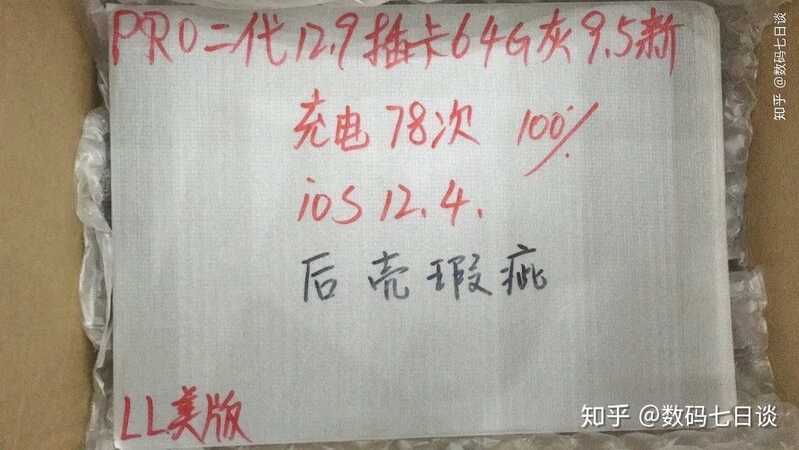 PRO二代12.9插卡64G灰9.5新
充电78次 100%
iOS 12.4.
后壳瑕疵
LL美版
知乎 @数码七日谈
知乎 @数码七日谈